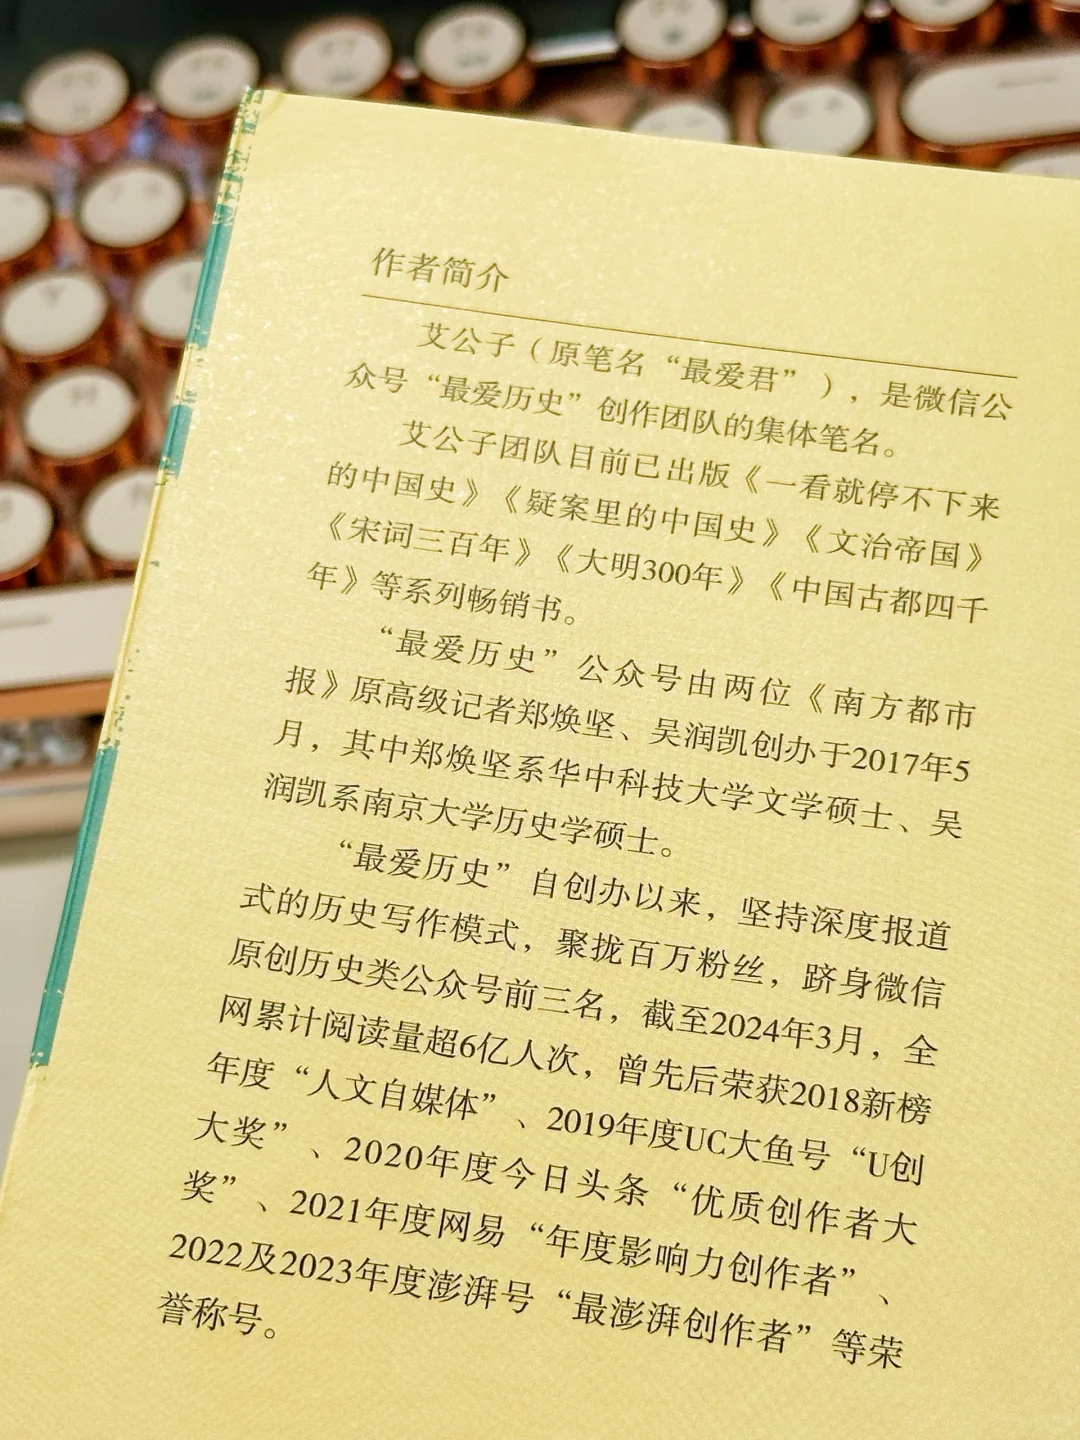 作者简介
艾公子（原笔名“最爱君”），是微信公
众号“最爱历史”创作团队的集体笔名。
艾公子团队目前已出版《一看就停不下来
的中国史》《疑案里的中国史》《文治帝国》
《宋词三百年》《大明300年》《中国古都四千
年》等系列畅销书。
“最爱历史”公众号由两位《南方都市
报》原高级记者郑焕坚、吴润凯创办于2017年5
月，其中郑焕坚系华中科技大学文学硕士、吴
润凯系南京大学历史学硕士。
“最爱历史”自创办以来，坚持深度报道
式的历史写作模式，聚拢百万粉丝，跻身微信
原创历史类公众号前三名，截至2024年3月，全
网累计阅读量超6亿人次，曾先后荣获2018新榜
年度“人文自媒体”、2019年度UC大鱼号“U创
大奖”、2020年度今日头条“优质创作者大
奖”、2021年度网易“年度影响力创作者”、
2022及2023年度澎湃号“最澎湃创作者”等荣
誉称号。